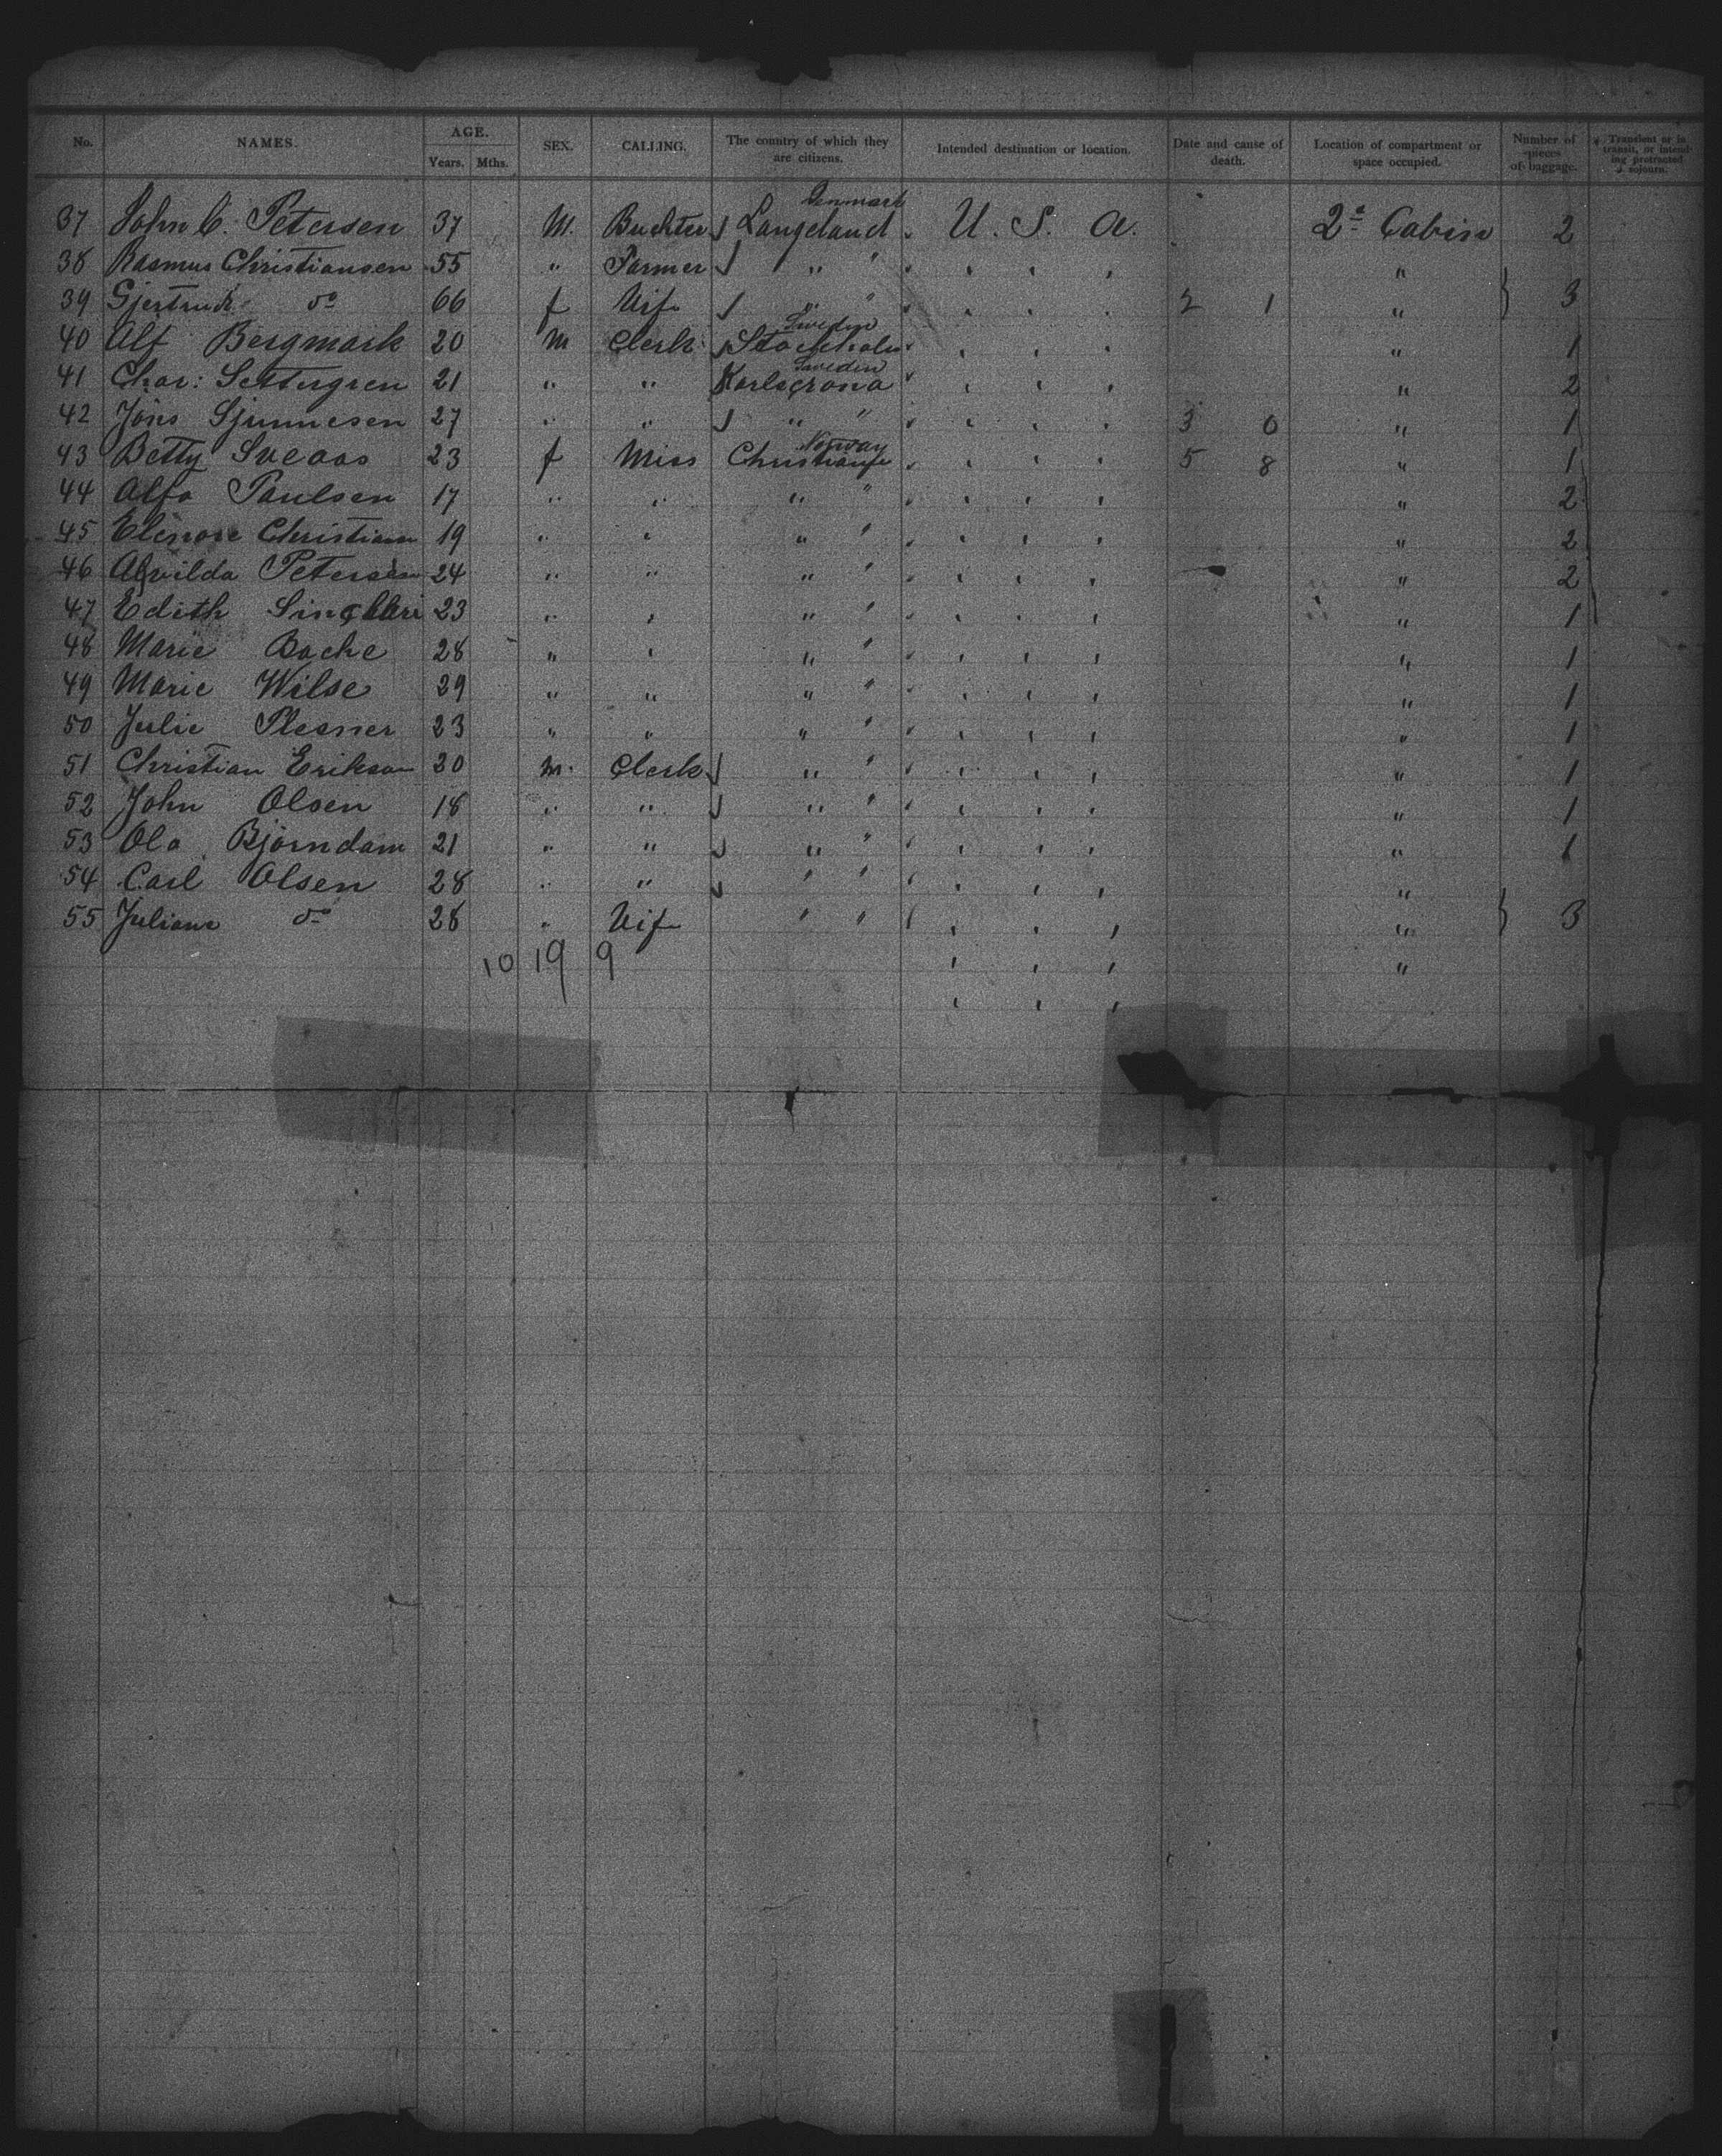 No. NAMES. AGE. Years. Mths. SEX. CALLING. The country of which they are citizens. Intended destination or location. Date and cause of death. Location of compartment or space occupied. Number of pieces of baggage. Transient or in transit, or intending protracted sojourn.
Denmark
37 John C. Petersen 37 M. Buchter Langeland U. S. A. 2ª Cabin 2
38 Rasmus Christiansen 55 " Farmer " " " " " "
39 Gjertrud do 66 f Wif " " " " " 2 1 " 3
Sweden
40 Alf Bergmark 20 M Clerk Stockholm " " " " 1
Sweden
41 Char: Settergren 21 " " Karlscrona " " " " 2
42 Jöns 27 " " " " " " " 3 0 " 1
Norway
43 Betty Sveaas 23 f Miss Christiania " " " 5 8 " 1
44 Alfa Paulsen 17 " " " " " " " " 2
45 Elenore Christian 19 " " " " " " " " 2
46 Petersen 24 " " " " " " " " 2
47 Edith 23 " " " " " " " " 1
48 Marie Bache 28 " " " " " " " " 1
49 Marie Wilse 29 " " " " " " " " 1
50 Julie Plesner 23 " " " " " " " " 1
51 Christian Erikson 20 m. Clerk " " " " " " 1
52 John Olsen 18 " " " " " " " " 1
53 Ola Bjorndam 21 " " " " " " " " 1
54 Carl Olsen 28 " " " " " " " "
55 Juliane do 28 " Wif " " " " " " 3
10 19 9 " " " "
" " "